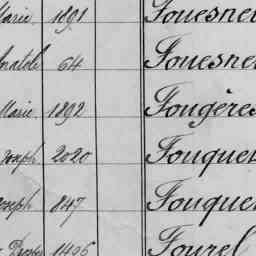 Marie 1891 Fouesne
Anatole 64 Fouesne
Marie 1892 Fougères
Joseph 2020 Fouque
Joseph 847 Fouque
1406 Fourel